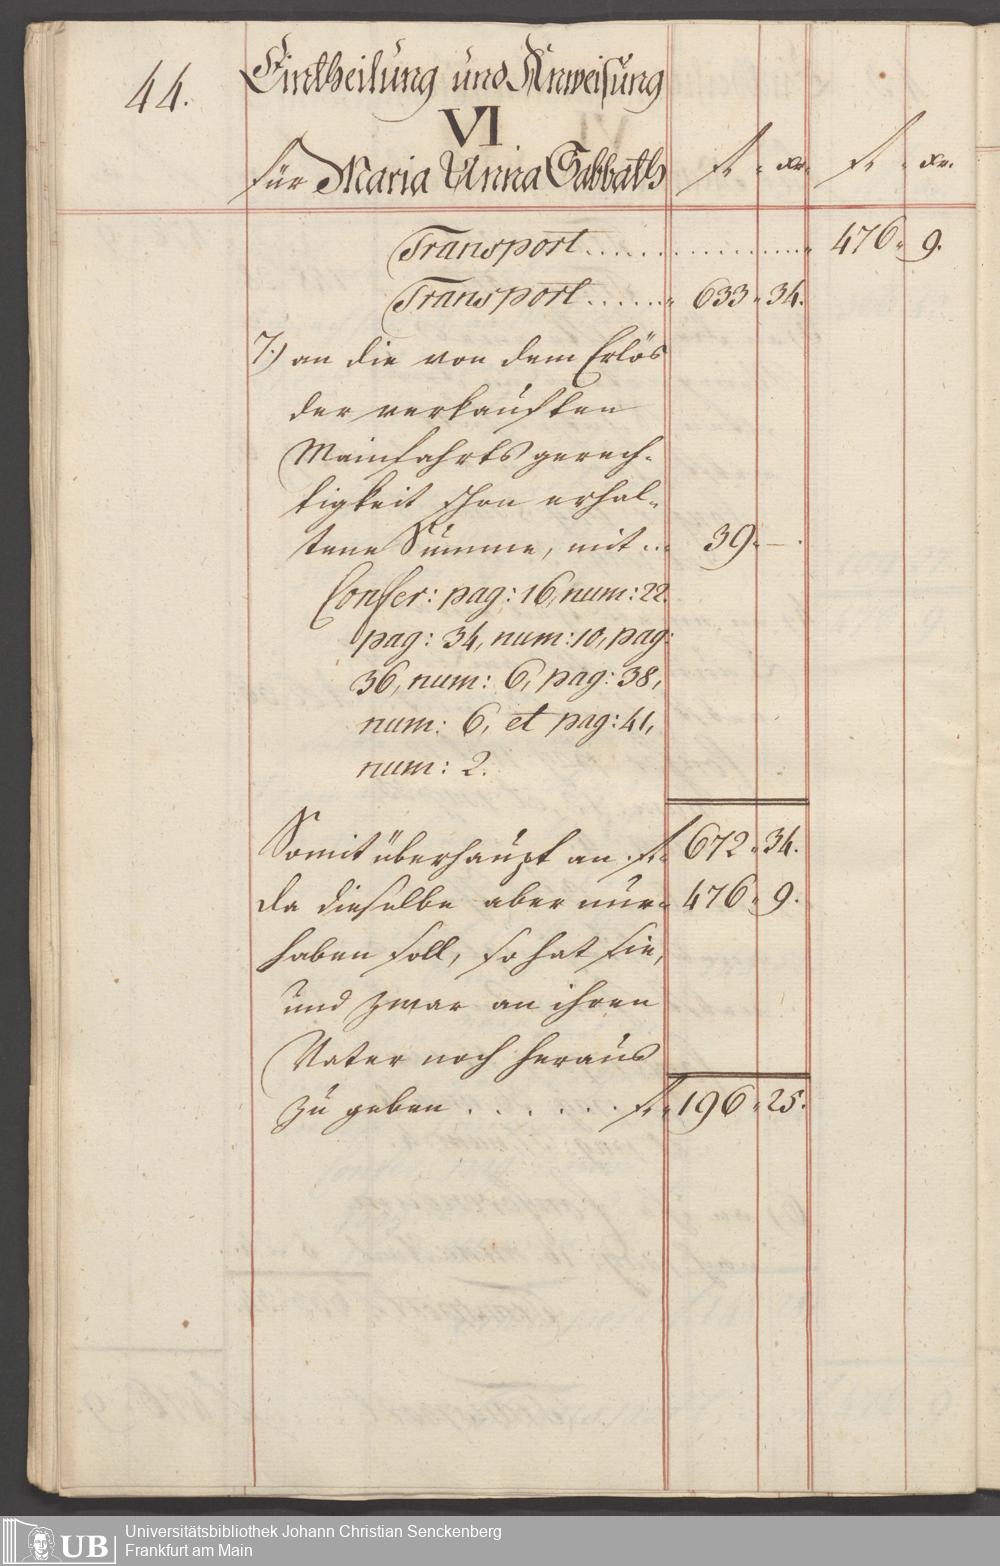 44.
Eintheilung und Anweisung
VI
für Maria Anna Sabbath
fl. xr. fl. xr.
Transport . . . . . . . . . . . . . . . 476. 9.
Transport . . . . . . 633. 34.
7.) an die von dem Erlös
der verkauften
Mainfahrtsgerech-
tigkeit schon erhal-
tene Summe, mit . . 39. —.
Confer: pag: 16, num: 22.
pag: 34, num: 10, pag:
36, num: 6, pag: 38,
num: 6, et pag: 41,
num: 2.
Somit überhaupt an . fl. 672. 34.
da dieselbe aber nur 476. 9.
haben soll, so hat sie,
und zwar an ihren
Vater noch heraus
zu geben . . . . . . fl. 196. 25.
UB
Universitätsbibliothek Johann Christian Senckenberg
Frankfurt am Main